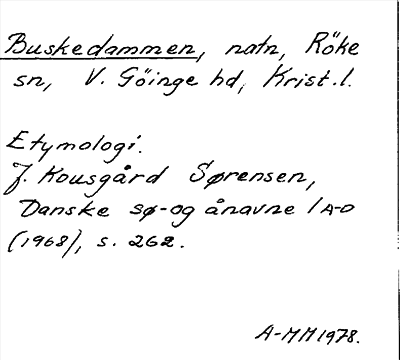 Buskedammen, natn, Röke
sn, V. Göinge hd, Krist.l.
Etymologi.
J. Kousgård Sørensen,
Danske sø-og ånavne 1 A-D
(1968), s. 262.
A-MM 1978.